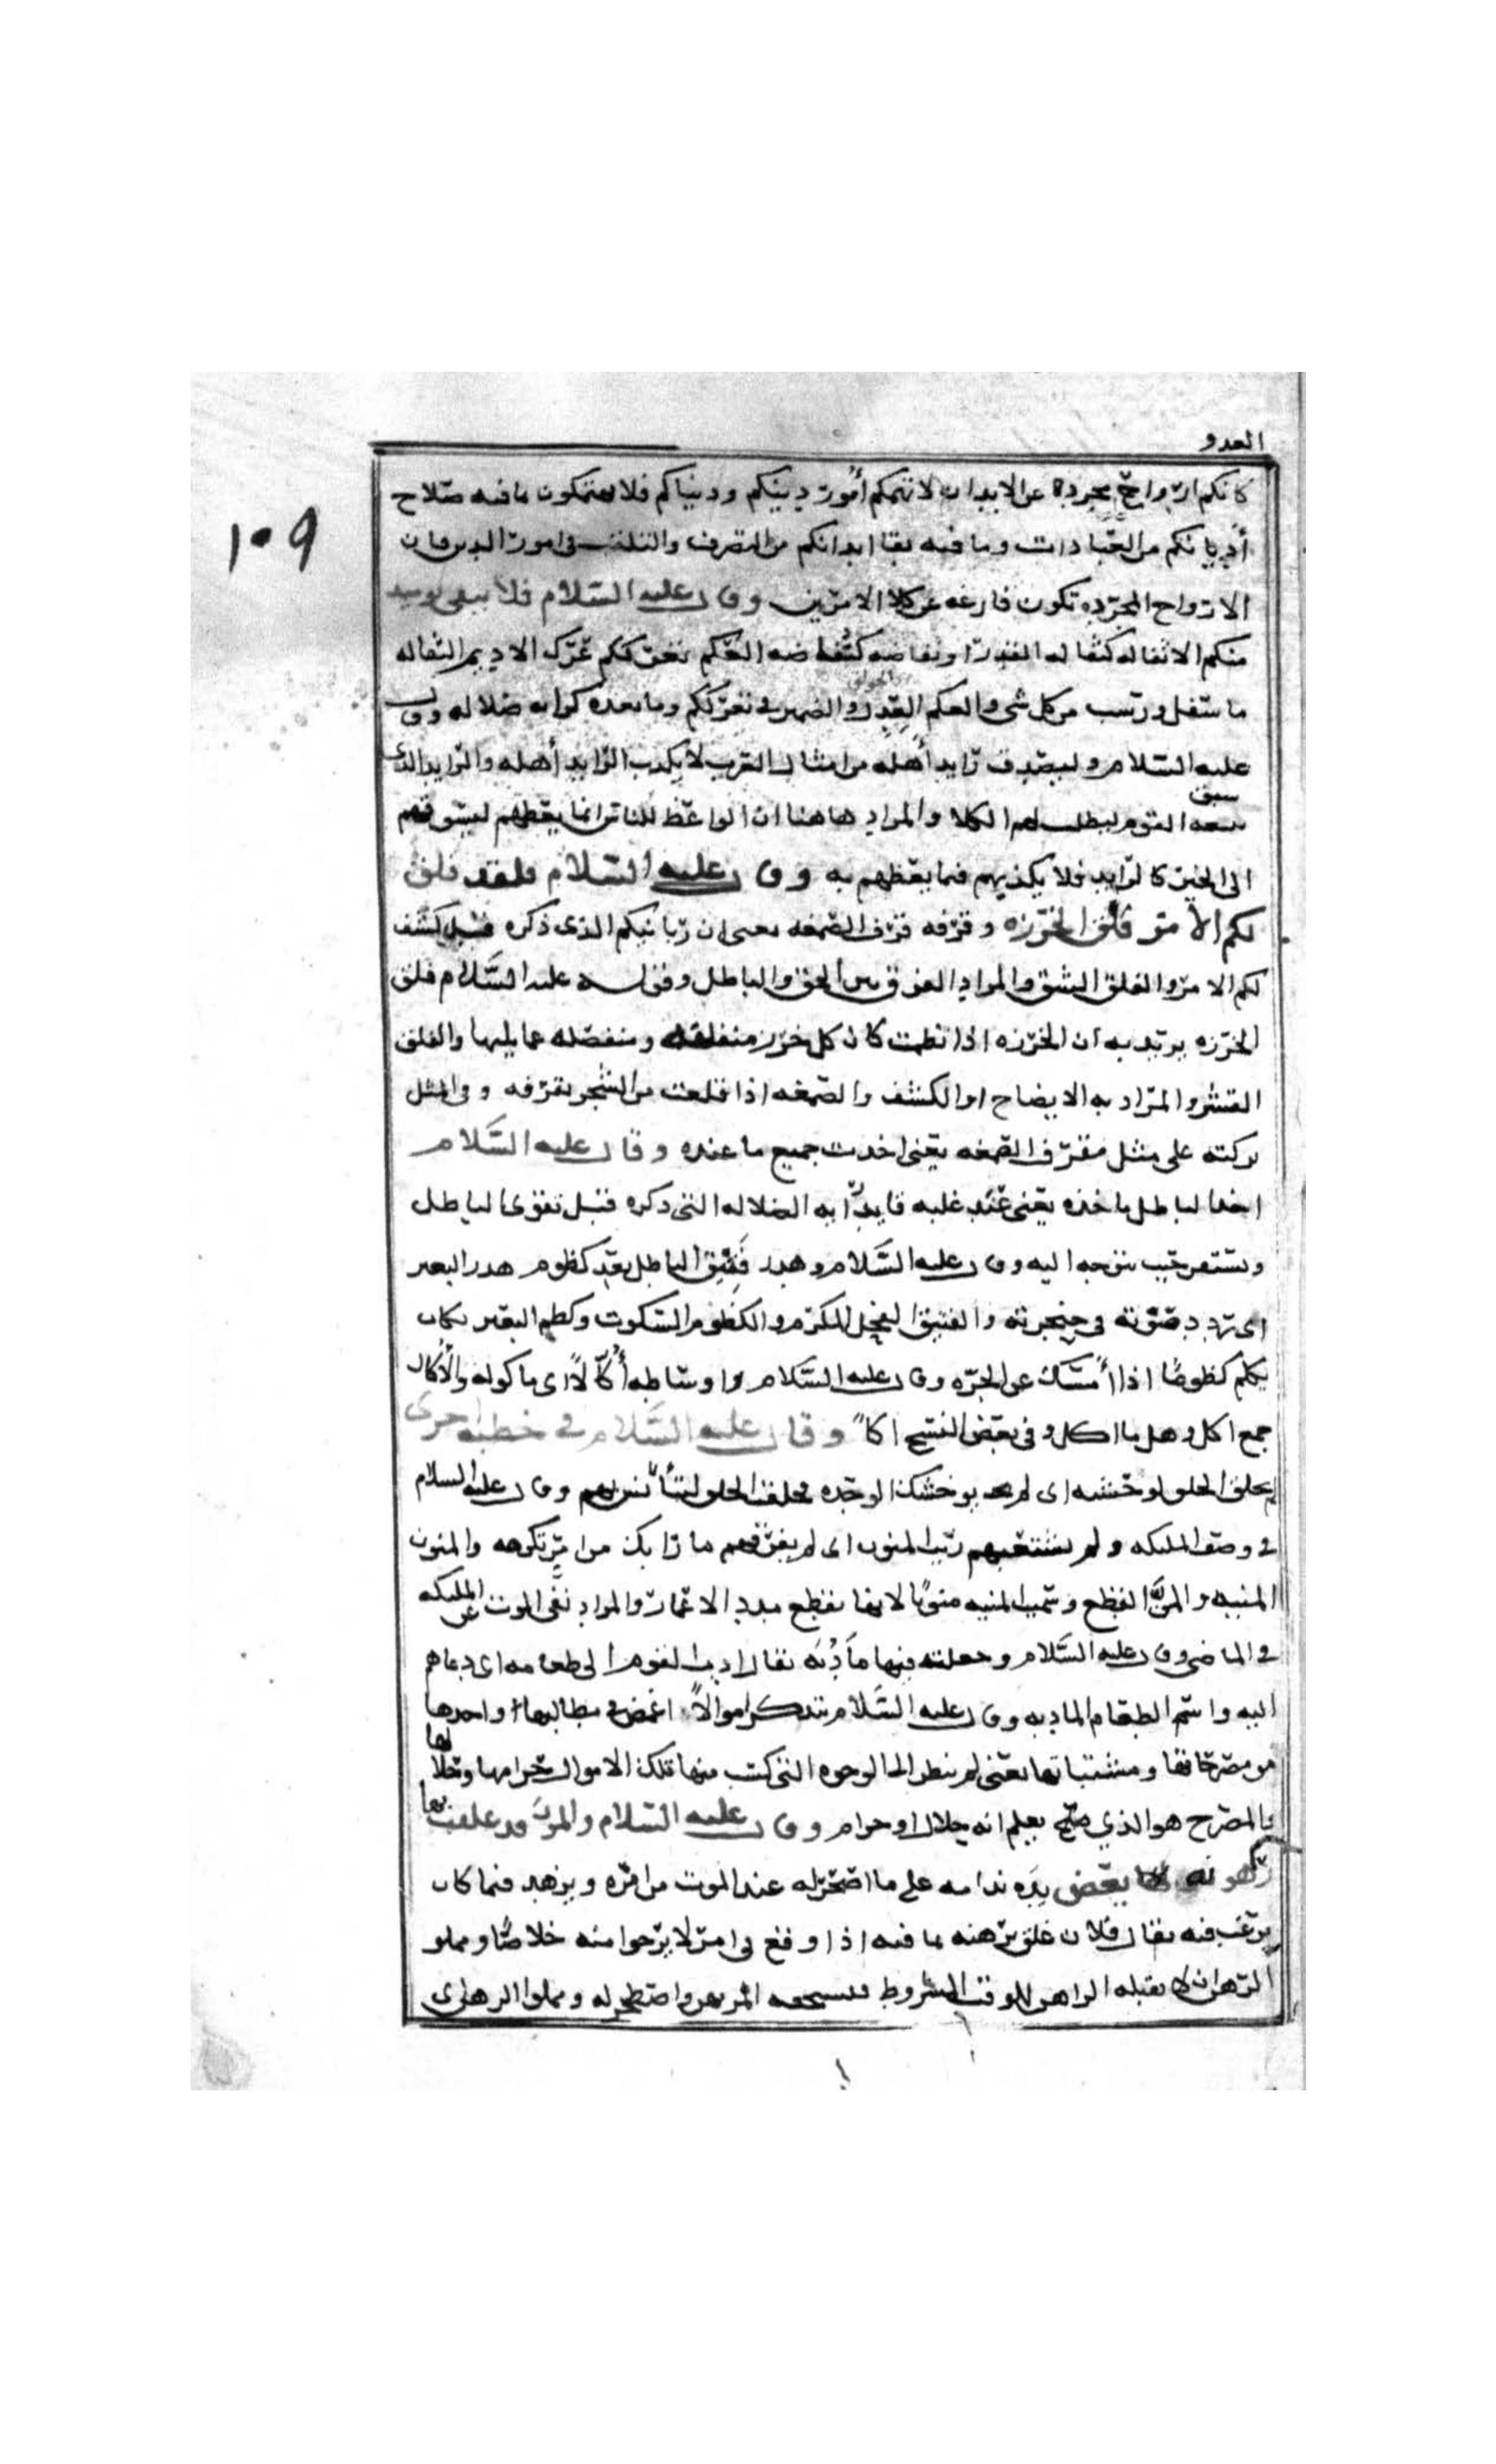 العدو
١٠٩
كانكم ارواح مجردة عن الابدان لا تهمكم أمور دينكم ودنياكم فلا تعتمكون ما فيه صلاح
أديانكم من العبادات وما فيه بقا ابدانكم من التصرف والتلفت في امور الدين فان
الارواح المجرده تكون فارغه عن كلا الامرين وقال عليه السلام فلا يبقى يوميد
منكم الا ثفاله كثفاله القدر او نفاضه كنفاضه العكم تعرككم عرك الاديم الثفاله
ما سفل ورسب من كل شي والعكم العدل والضمير في تعرككم وما بعده كرايه ضلاله وقال
الجوالق
عليه السلام وليصدق رايد أهله من امثال العرب لا يكذب الرايد أهله والرايد الذي
سبق
يبعثه القوم ليطلب لهم الكلا والمراد هاهنا ان الواعظ للناس انما يعظهم ليسوقهم
الى الخير كالرايد فلا يكذبهم فيما يعظهم به وقال عليه السلام فلقد فلق
لكم الامر فلق الخرزه وقرفه قرف الصمغه يعني ان ربانيكم الذي ذكره قبل كشف
لكم الامر والفلق الشق والمراد الفرق بين الحق والباطل وقوله عليه السلام فلق
الخرزه يريد به ان الخرزه اذا نظمت كان كل خرز منفلقه ومنفصله عما يليها والفلق
القشر والمراد به الايضاح او الكشف والصمغه اذا قلعت من الشجر بقرفه وفي المثل
تركته على مثل مقرف الصمغه يعني اخذت جميع ما عنده وقال عليه السلام
اخذ الباطل ماخذه يعني عند غلبه قايد رايه الضلاله التي ذكره قبل تقوى الباطل
ويستقر حيث يتوجه اليه وقال عليه السلام وهدر فنيق الباطل بعد كظوم هدر البعير
اى تردد صوته في حنجرته والفنيق الفحل المكرم والكظوم السكوت وكظم البعير
يكظم كظوما اذا أمسك عن الجره وقال عليه السلام واوساطه أُكَّالاً اى ماكوله والأكال
جمع اكل وهل ما اكل وفي بعض النسخ اكالا وقال عليه السلام في خطبه اخرى
لم يخلق الخلق لوحشه اى لم يوحشك الوحده فخلقت الخلق لتأنس بهم وقال عليه السلام
في وصف المليكه ولم يشعبهم ريب المنون اى لم يفرقهم ما رابك من امر تكرهه والمنون
المنيه والمنّ القطع وسميت المنيه منونا لانها تقطع مدد الاعمار والمراد نفى الموت عن المليكه
في الماضي وقال عليه السلام وجعلت فيها مأدُبَه يقال ادب القوم الى طعامه اى دعاهم
اليه واسم الطعام المادبه وقال عليه السلام يتذكر اموالاً اغمض في مطالبها واخذها
من مصرحاتها ومشتبهاتها يعني لم ينظر الى الوجوه التي كسب منها تلك الاموال حرامها وحلالها
والمصرح هو الذي صح يعلم انه حلال او حرام وقال عليه السلام والمرؤ قد غلقت
رهونه بها يعض يده ندامه على ما اصحر له عند الموت من امره ويزهد فيما كان
يرغب فيه يقال فلان غلق برهنه بما فيه اذا وقع في امر لا يرجوا منه خلاصا
الرهن لا يقبله الراهن للوقت المشروط فيستحقه المرتهن